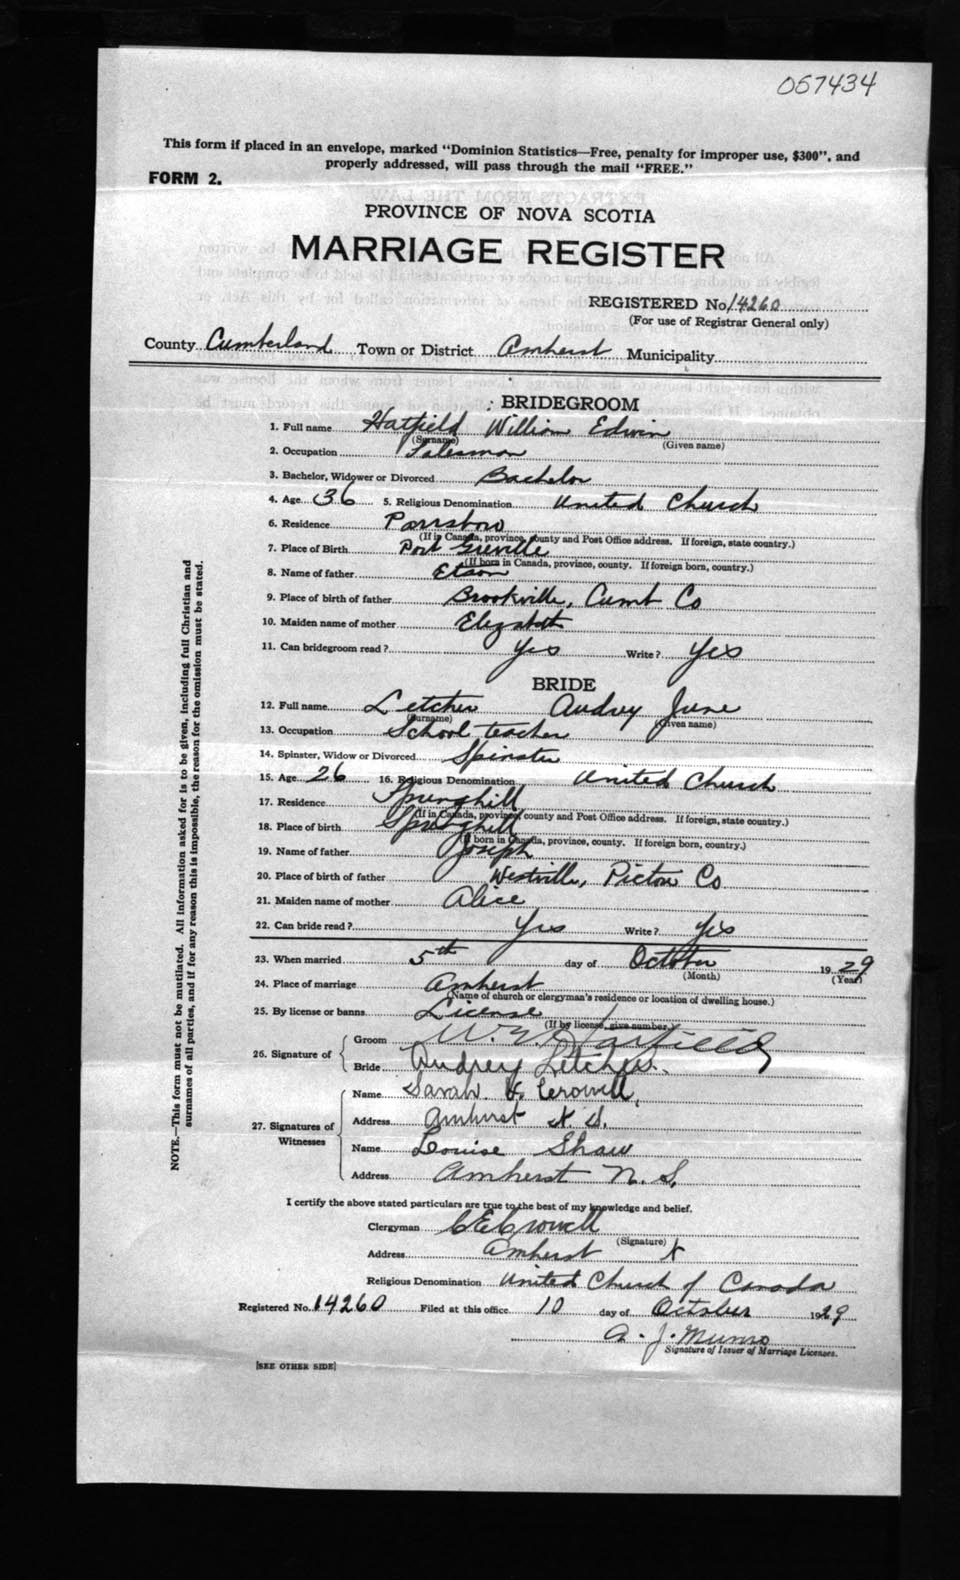 057434
This form if placed in an envelope, marked "Dominion Statistics—Free, penalty for improper use, $300", and
properly addressed, will pass through the mail "FREE."
FORM 2.
PROVINCE OF NOVA SCOTIA
MARRIAGE REGISTER
REGISTERED No. 14260
(For use of Registrar General only)
County Cumberland Town or District Amherst Municipality
BRIDEGROOM
1. Full name Hatfield William Edwin
(Surname) (Given name)
2. Occupation Salesman
3. Bachelor, Widower or Divorced Bachelor
4. Age 36 5. Religious Denomination United Church
6. Residence Parrsboro
(If in Canada, province, county and Post Office address. If foreign, state country.)
7. Place of Birth Port Greville
(If born in Canada, province, county. If foreign born, country.)
8. Name of father
9. Place of birth of father Brookville, Cumb Co
10. Maiden name of mother Elizabeth
11. Can bridegroom read? Yes Write? Yes
BRIDE
12. Full name Letcher Audrey June
(Surname) (Given name)
13. Occupation School teacher
14. Spinster, Widow or Divorced Spinster
15. Age 26 16. Religious Denomination United Church
17. Residence Springhill
(If in Canada, province, county and Post Office address. If foreign, state country.)
18. Place of birth Springhill
(If born in Canada, province, county. If foreign born, country.)
19. Name of father Joseph
20. Place of birth of father Westville, Pictou Co
21. Maiden name of mother Alice
22. Can bride read? Yes Write? Yes
23. When married 5th day of October 1929
(Month) (Year)
24. Place of marriage Amherst
(Name of church or clergyman's residence or location of dwelling house.)
25. By license or banns License
(If by license, give number.)
26. Signature of
Groom W. E. Hatfield
Bride Audrey Letcher.
27. Signatures of Witnesses
Name Sarah F. Crowell,
Address Amherst N. S.
Name Louise Shaw
Address Amherst N. S.
I certify the above stated particulars are true to the best of my knowledge and belief.
Clergyman C E Crowell
(Signature)
Address Amherst
Religious Denomination United Church of Canada
Registered No. 14260 Filed at this office 10 day of October 1929
A. J. Munro
Signature of Issuer of Marriage Licenses.
[SEE OTHER SIDE]
NOTE.—This form must not be mutilated. All information asked for is to be given, including full Christian and
surnames of all parties, and if for any reason this is impossible, the reason for the omission must be stated.